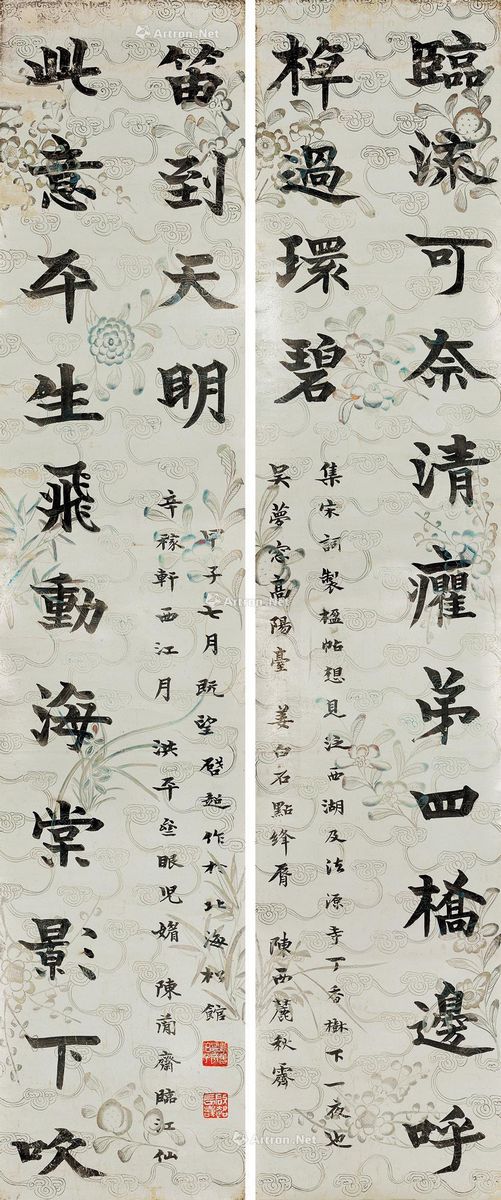 臨流可奈清癯弟四橋邊呼
棹過環碧
集宋詞製楹帖想見泛西湖及法源寺丁香樹下一夜也
吳夢窗高陽臺 姜白石點絳脣 陳西麓秋霽
此意平生飛動海棠影下吹
笛到天明
辛稼軒西江月 洪平眼兒媚 陳蕳齋臨江仙
甲子七月既望啓超作於北海松館
Artron.Net